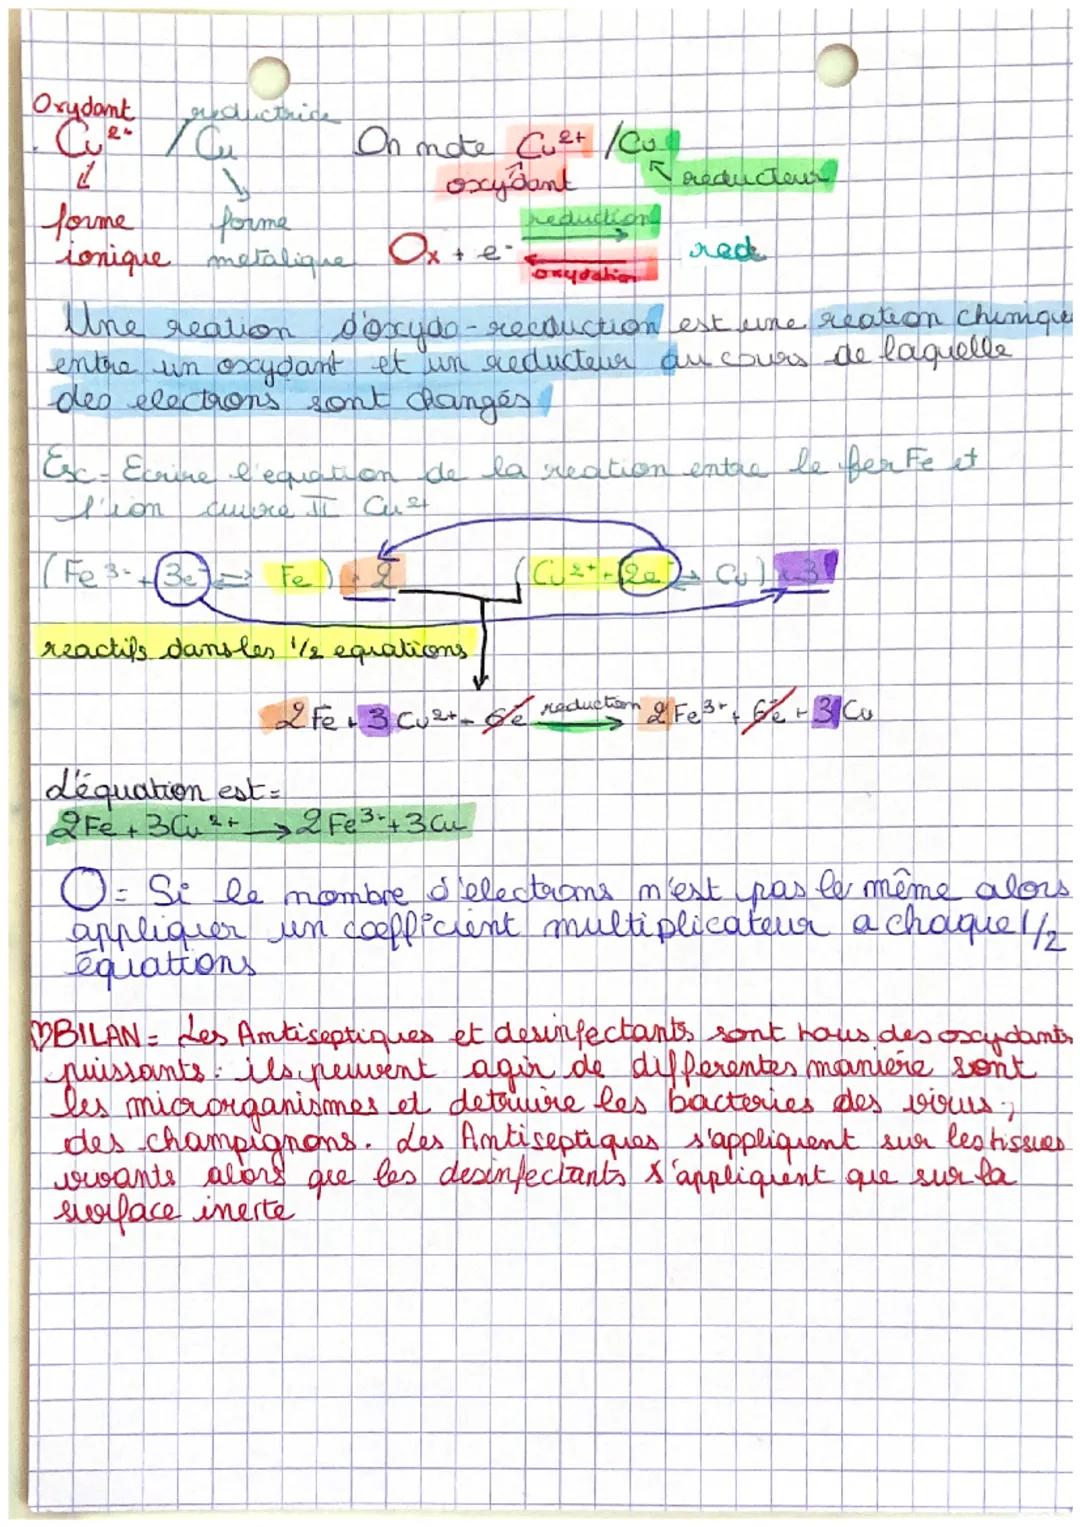 Oxydant reductrice
Cu²⁺ / Cu On note Cu²⁺ /Cu
oxydant reducteur
forme forme reduction
ionique metalique Ox + e⁻ red
oxydation
Une reation d'oxydo-recduction est une reation chimique
entre un oxydant et un reducteur au cours de laquelle
des electrons sont changés
Ex= Ecrire l'equation de la reation entre le fer Fe et
l'ion cuivre II Cu²⁺
(Fe³⁺ + 3e⁻ ⇌ Fe) × 2 (Cu²⁺ + 2e⁻ ⇌ Cu) × 3
reactifs dans les 1/2 equations
2 Fe + 3 Cu²⁺ + 6e⁻ reduction 2 Fe³⁺ + 6e⁻ + 3 Cu
L'équation est=
2Fe + 3Cu²⁺ → 2Fe³⁺ + 3Cu
O= Si le nombre d'electrons n'est pas le même alors
appliquer un coefficient multiplicateur a chaque 1/2
équations
♡BILAN= Les Antiseptiques et desinfectants sont tous des oxydants
puissants: ils peuvent agir de differentes manière sont
les microrganismes et detruire les bacteries des virus;
des champignons. Les Antiseptiques s'appliquent sur les tissues
vivants alors que les desinfectants s'appliquent que sur la
surface inerte